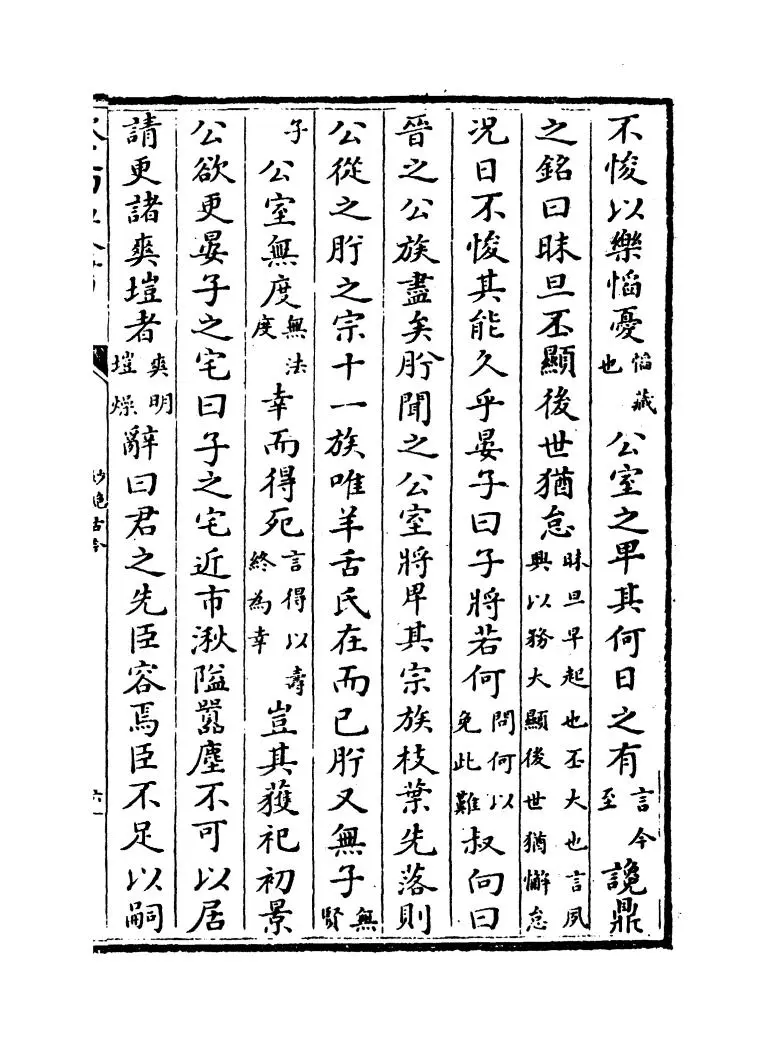 不悛以樂慆憂慆藏也公室之卑其何日之有言今至讒鼎
之銘曰昧旦丕顯後世猶怠昧旦早起也丕大也言夙興以務大顯後世猶懈怠
況日不悛其能久乎晏子曰子將若何問何以免此難叔向曰
晉之公族盡矣肸聞之公室將卑其宗族枝葉先落則
公從之肸之宗十一族唯羊舌氏在而已肸又無子無賢
子公室無度無法度幸而得死言得以壽終為幸豈其獲祀初景
公欲更晏子之宅曰子之宅近市湫隘囂塵不可以居
請更諸爽塏者爽明塏燥辭曰君之先臣容焉臣不足以嗣
妙絶古今